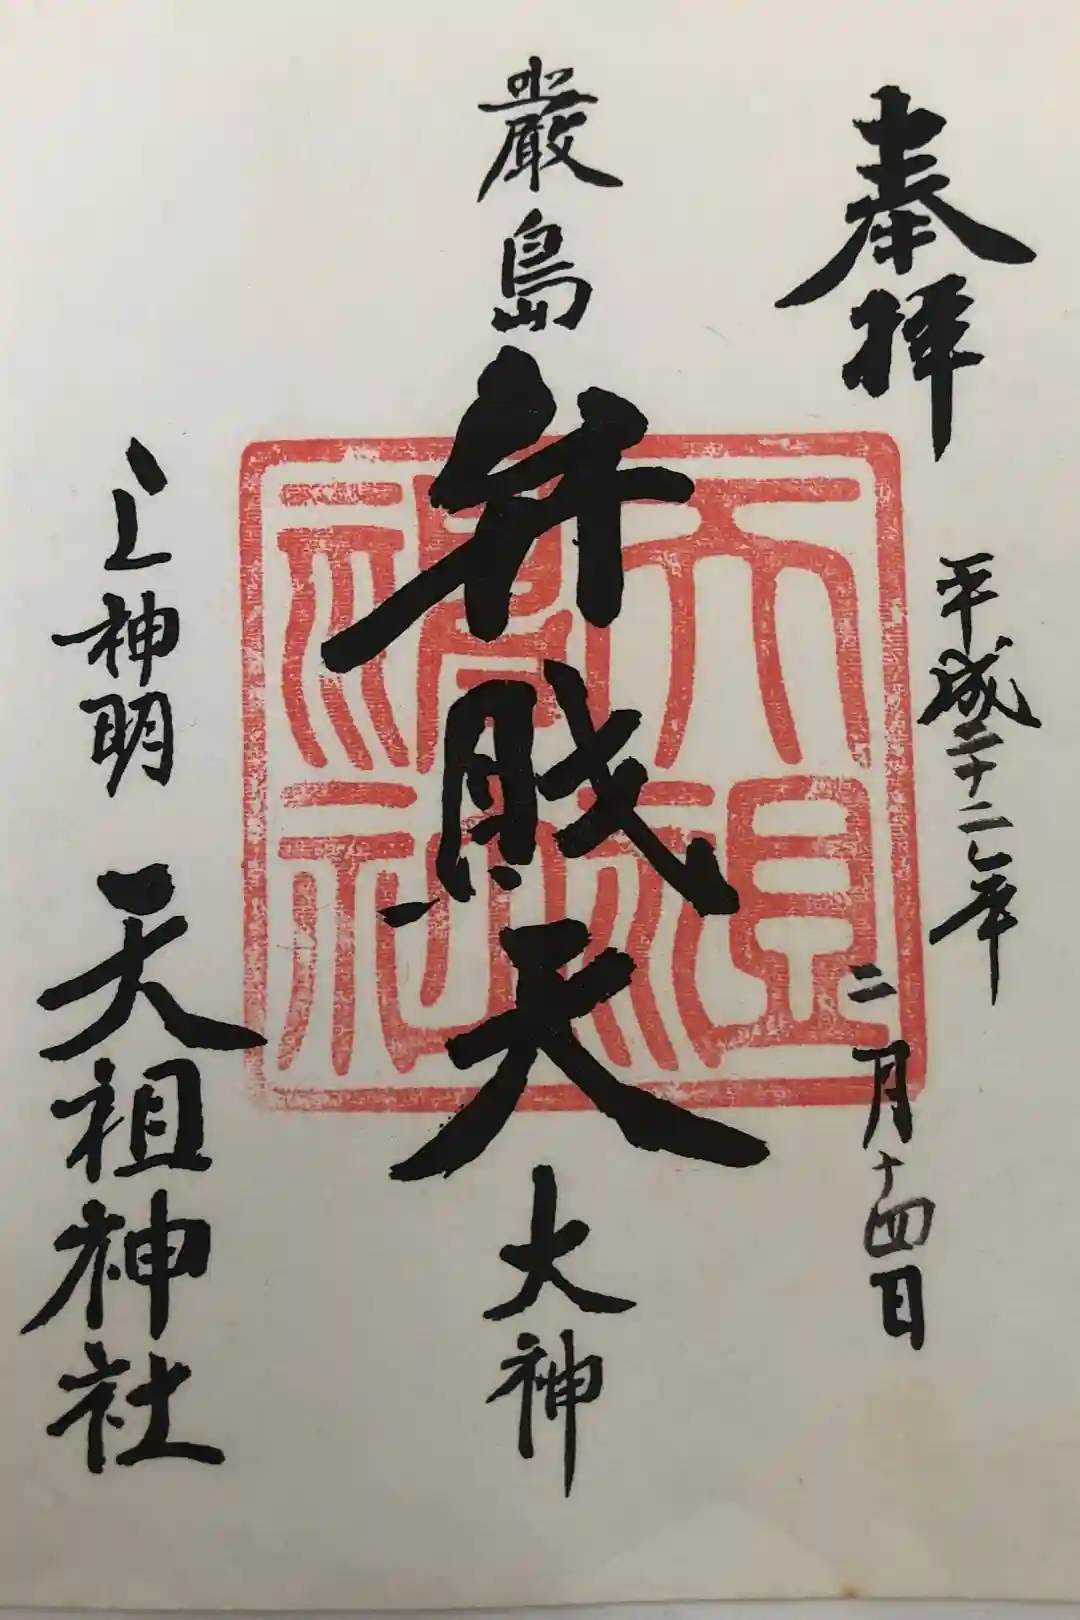 奉拝
平成二十二年
二月十四日
嚴島弁財天大神
上神明天祖神社
天祖神社